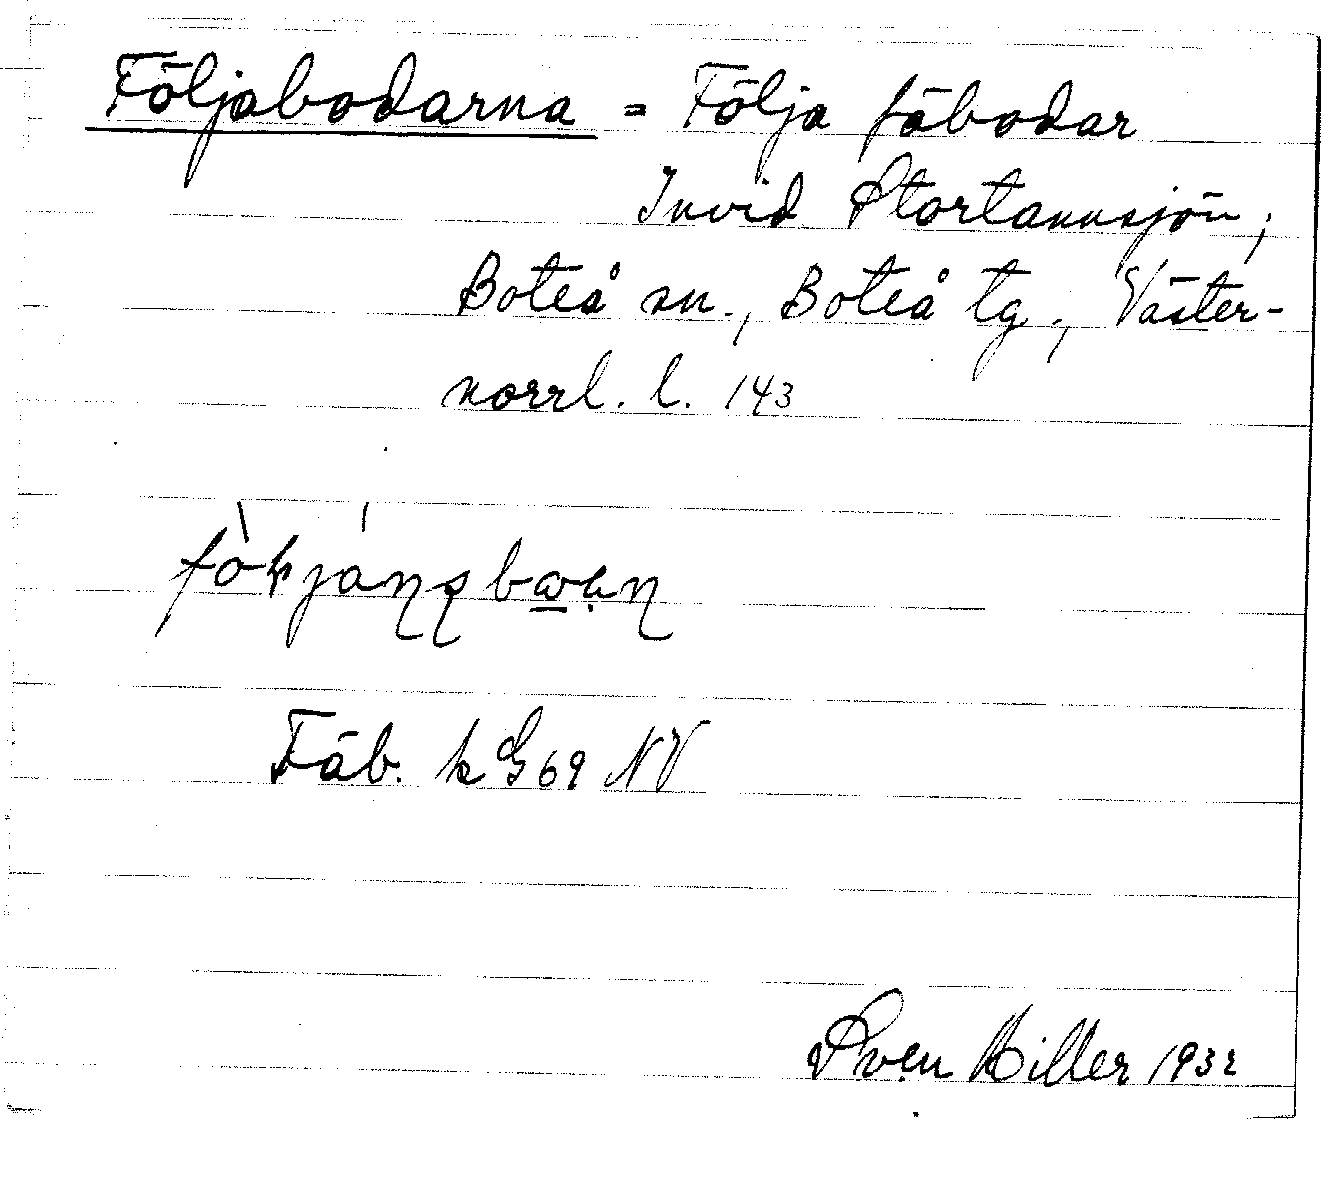 Följabodarna = Följa fäbodar
Invid Stortannsjön,
Boteå sn., Boteå tg., Väster-
norrl. l. 143
Fäb. k G 69 NV
Sven Hiller 1932